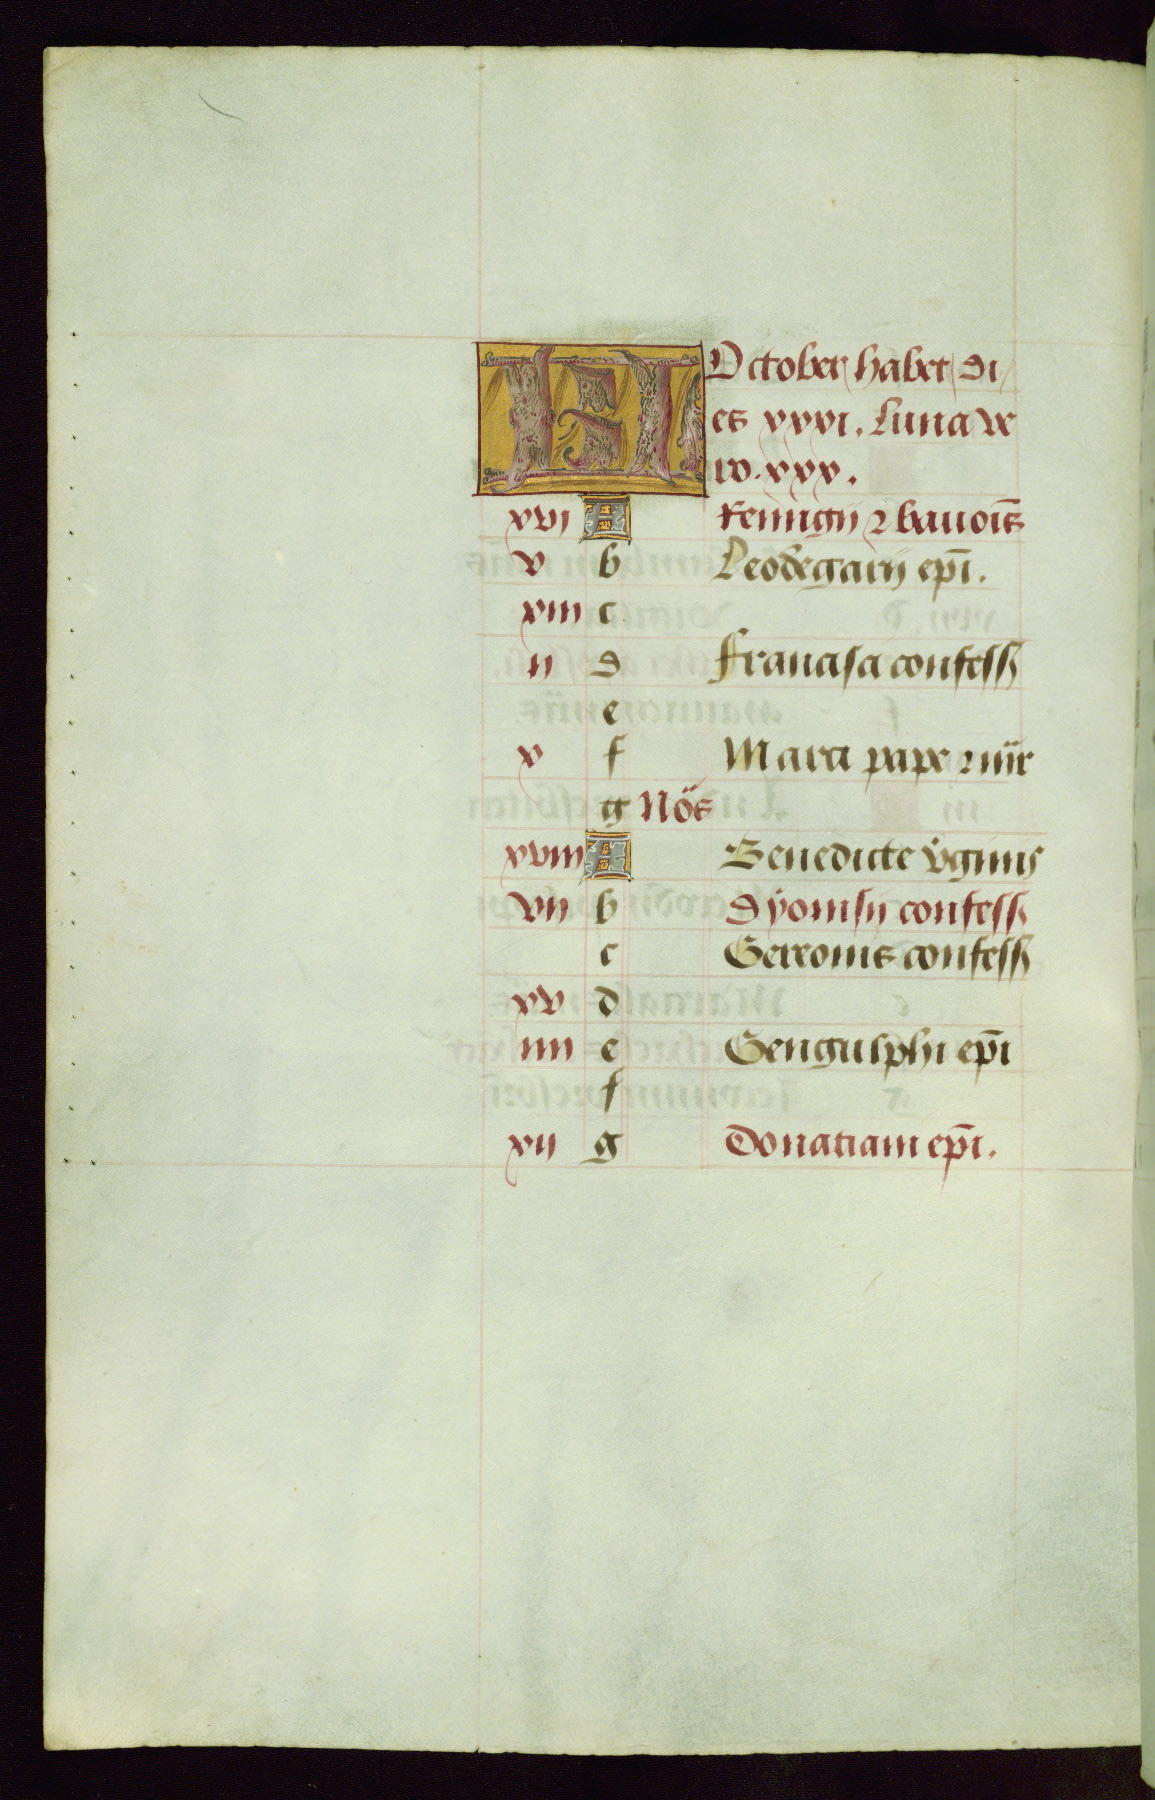 KL October habet di
es xxxi. Luna ve
ro. xxx.
xvi A Remigii ⁊ bauoīs
v b Leodegarii ep̄i.
xiii c
ii d Francisci confess
e
x f Marci pape ⁊ mr̄
g Nōs
xviii A Benedicte v̄ginis
vii b dyonisii confess
c Gereonis confess
xv d
iiii e Gengulphi ep̄i
f
xii g Donatiani ep̄i.